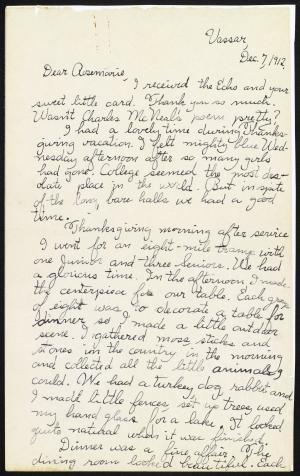 Vassar,
Dec. 7, 1912.
Dear Rosemarie,
I received the Echo and your
sweet little card. Thank you so much.
Wasn't Charles McNeal's poem pretty?
I had a lovely time during Thanks-
giving vacation. I felt mighty blue Wed-
nesday afternoon after so many girls
had gone. College seemed the most des-
olate place in the world. But in spite
of the long bare halls we had a good
time.
Thanksgiving morning after service
I went for an eight-mile tramp with
one Junior and three Seniors. We had
a glorious time. In the afternoon I made
the centerpiece for our table. Each group
of eight was to decorate a table for
dinner, so I made a little outdoor
scene. I gathered moss, sticks and
stones in the country in the morning
and collected all the little animals I
could. We had a turkey, dog, rabbit and
I made little fences, set up trees, used
my hand glass for a lake. It looked
quite natural when it was finished.
Dinner was a fine affair. The
dining room looked beautiful. Each